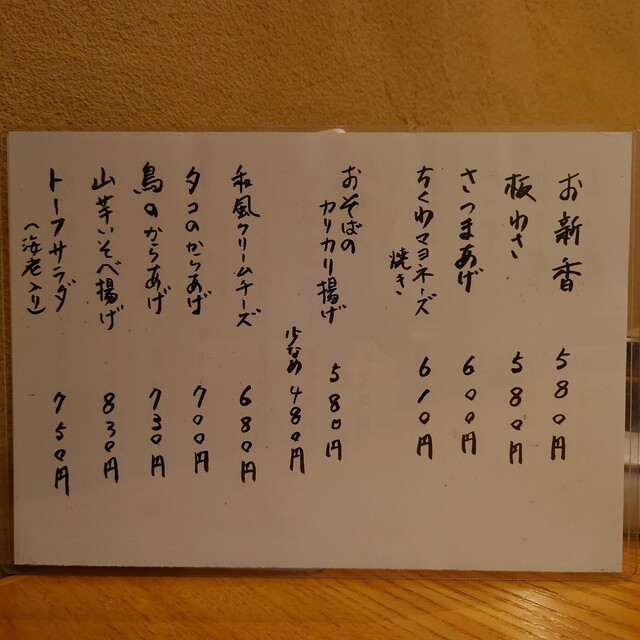 お新香 580円
板わさ 580円
さつまあげ 600円
ちくわマヨネーズ
焼き 610円
おそばの
カリカリ揚げ 580円
少なめ 480円
和風クリームチーズ 680円
タコのからあげ 700円
鳥のからあげ 730円
山芋いそべ揚げ 830円
トーフサラダ 750円
(海老入り)